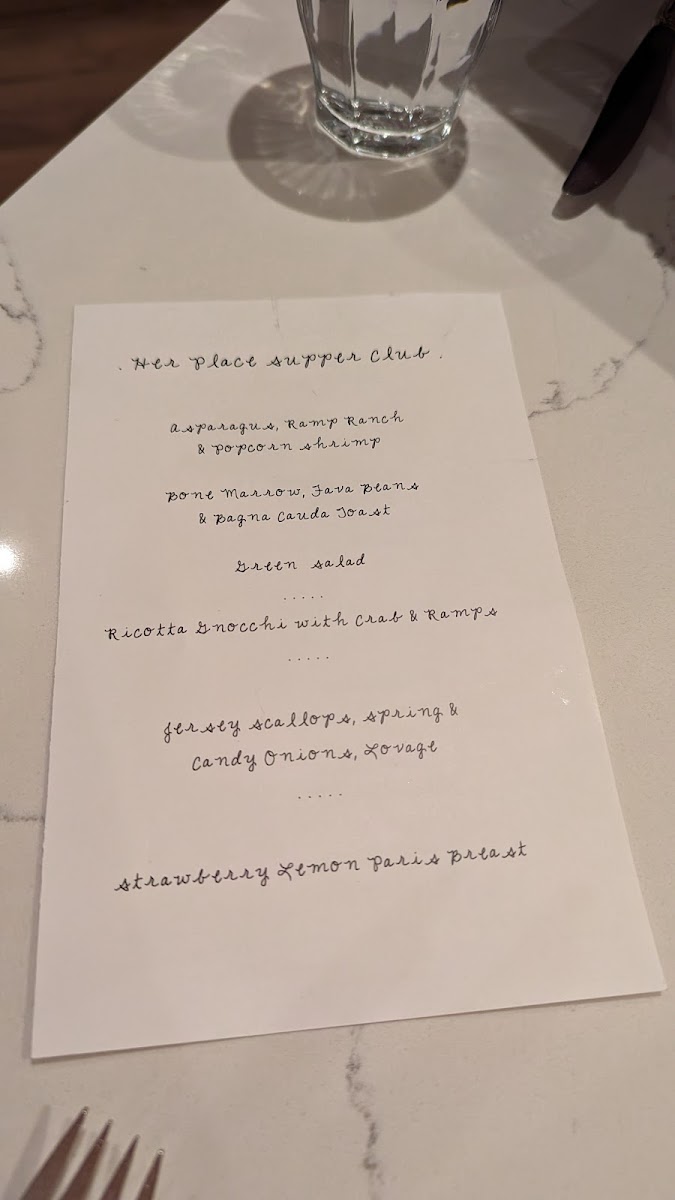 . Her Place Supper Club .
Asparagus, Ramp Ranch
& Popcorn Shrimp
Bone Marrow, Fava Beans
& Bagna Cauda Toast
Green Salad
.....
Ricotta Gnocchi with Crab & Ramps
.....
Jersey Scallops, Spring &
Candy Onions, Lovage
.....
Strawberry Lemon Paris Breast